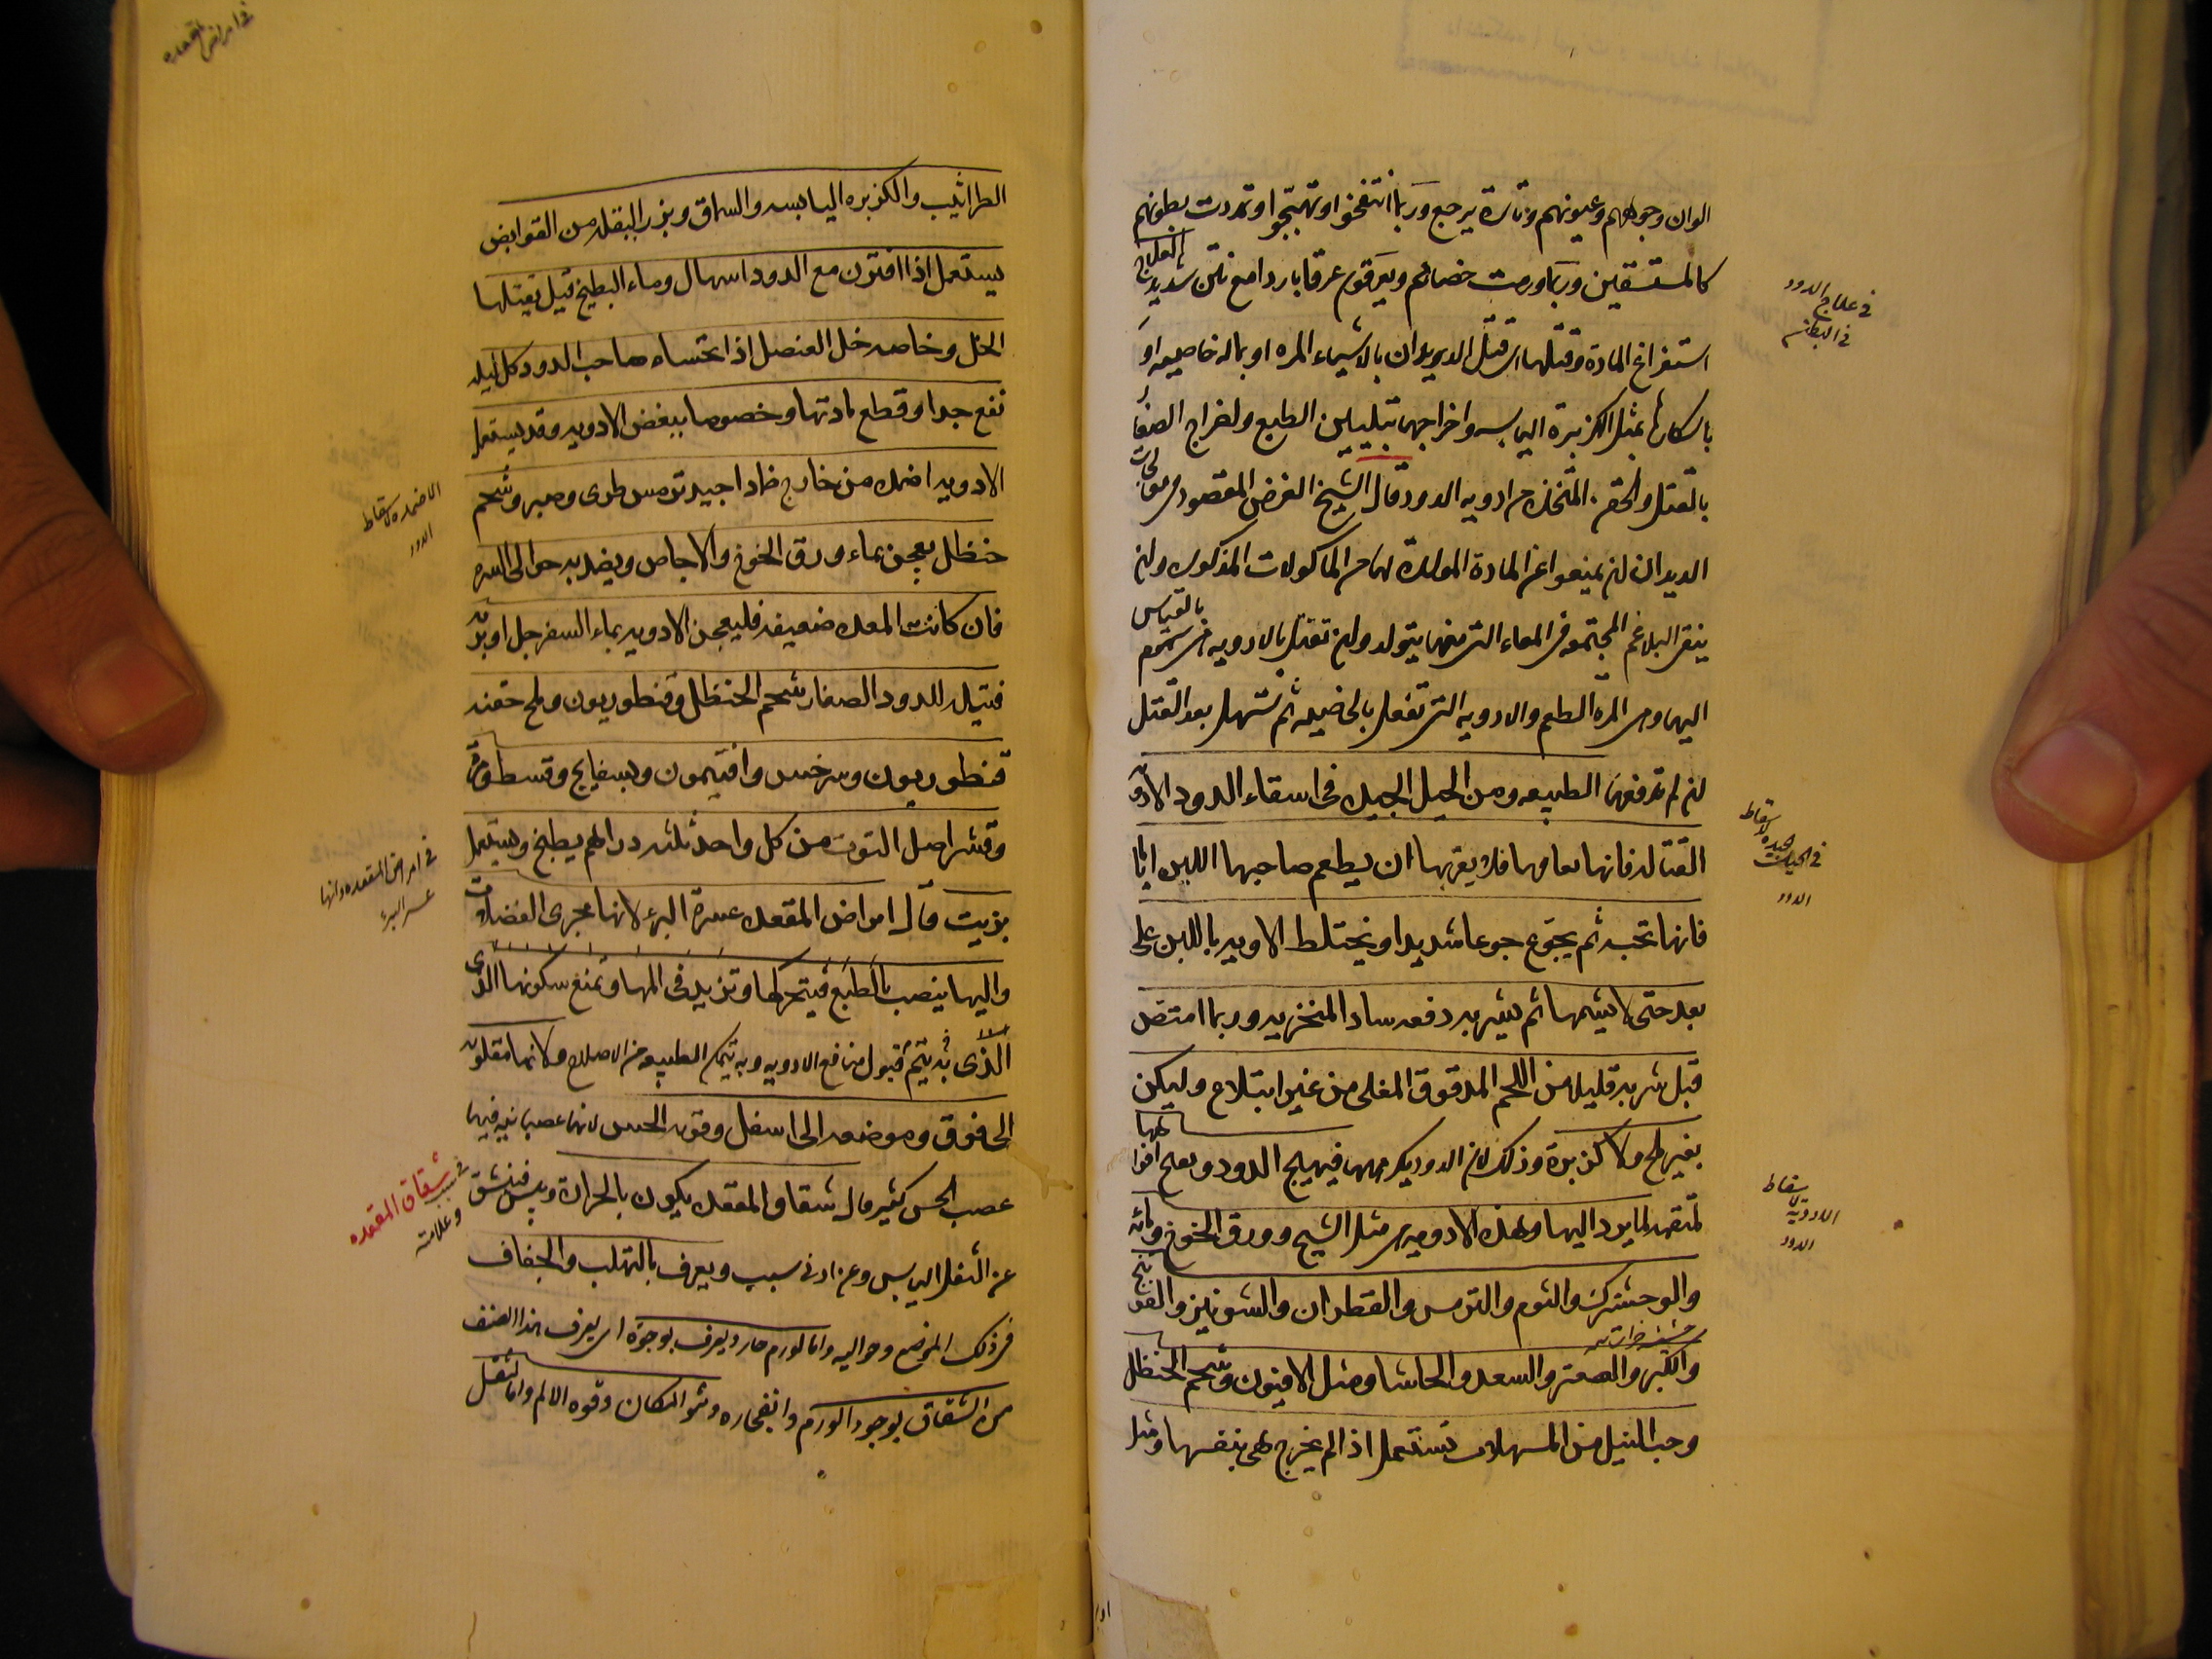 الوان وجوههم وعيونهم وتارة يرجع وربما انتفخوا وتهبجوا وتمددت بطونهم
كالمستسقين وربما ورمت خصائهم ويعرقون عرقا باردا مع نتن شديد العلاج
استفراغ المادة وقتلها اى قتل الديدان بالاشياء المره او بماله خاصيه او
باسكارها بمثل الكزبرة اليابسه واخراجها بتليين الطبع ولخراج الصغار
بالفتل والحقن المتخذة من ادويه الدود قال الشيخ الغرض المقصود فى معالجات
الديدان ان يمنعوا عن المادة المولدة لها من الماكولات المذكوره وان
ينقى البلاغم المجتمعه فى المعاء التى منها يتولد وان تقتل بالادويه هى سموم بالقياس
اليها وهى المره الطعم والادويه التى تفعل بالخاصيه ثم تسهل بعد القتل
ان لم تدفعها الطبيعه ومن الحيل الجيده فى اسقاء الدود الادويه
القتاله فانها فلا يقربها ان يطعم صاحبها اللبن اياما
فانها تحبه ثم يجوع جوعا شديدا ويختلط الادويه باللبن على
بعد حتى لا يشمها ثم يشربه دفعه سادا المنخزيه وربما امتص
قبل شربه قليلا من اللحم المدقوق المغلى من غير ابتلاع وليكن
بغير ملح ولا كزبرة وذلك لان الدود فيهيج الدود ويفتح افواهها
لتقبل ما يرد اليها وهذه الادويه هى مثل الشيح وورق الخوخ ومائه
والوحشيزك والثوم والترمس والقطران والشونيز والفودنج
والكبر والصعتر والسعد والحاشا ومثل الافيون وشحم الحنظل
وحب النيل من المسهلات تستعمل اذا لم يخرج هى بنفسها ومثل
فى علاج الدود
فى البطن
فى الحيلة الجيده لاسقاط
الدود
الادويه لاسقاط
الدود
فى امراض المقعده
الطراثيب والكزبره اليابسه والسماق وبزر البقله من القوابض
يستعمل اذا اقترن مع الدود اسهال وماء البطيخ قيل يقتلها
الخل وخاصه خل العنصل اذا تحتساه صاحب الدود كل ليله
نفع جدا وقطع مادتها وخصوصا ببعض الادويه وقد يستعمل
الادويه اضمده من خارج ضمادا جيد ترمس طرى وصبر وشحم
حنظل يعجن بماء ورق الخوخ والاجاص ويضمد به حوالى السره
فان كانت المعده ضعيفه فليعجن الادويه بماء السفرجل او بربه
فتيله للدود الصغار شحم الحنظل وقنطوريون وملح حقنه
قنطوريون وسرخس وافتيمون وبسفايج وقسط ومر
وقشر اصل التوت من كل واحد ثلثه دراهم يطبخ ويستعمل
بزيت قال امراض المقعده عسرة البرء لانها مجرى الفضلات
واليها ينصب بالطبع فيتحركها وتزيد فى المها وتمنع سكونها الذى
الذى به يتم قبول منافع الادويه وبه يتمكن الطبيعه من الاصلاح ولانها مقلوبه
الى فوق وموضعه الى اسفل وقويه الحس لانها عصبانيه فيها
عصب الحس كثير قال شقاق المقعده يكون بالحرارة ويبس فينشق
عن الثفل اليابس وعن ادنى سبب ويعرف بالتهلب والجفاف
فى ذلك الموضع وحواليه واما لورم حار ويعرف بوجوده اى يعرف هذا الصنف
من الشقاق بوجود الورم وانفجاره ونتو المكان وقوه الالم واما لثفل
الاضمده لاسقاط
الدود
فى امراض المقعده وانها
عسر البرء
فى سبب شقاق المقعده
وعلامته